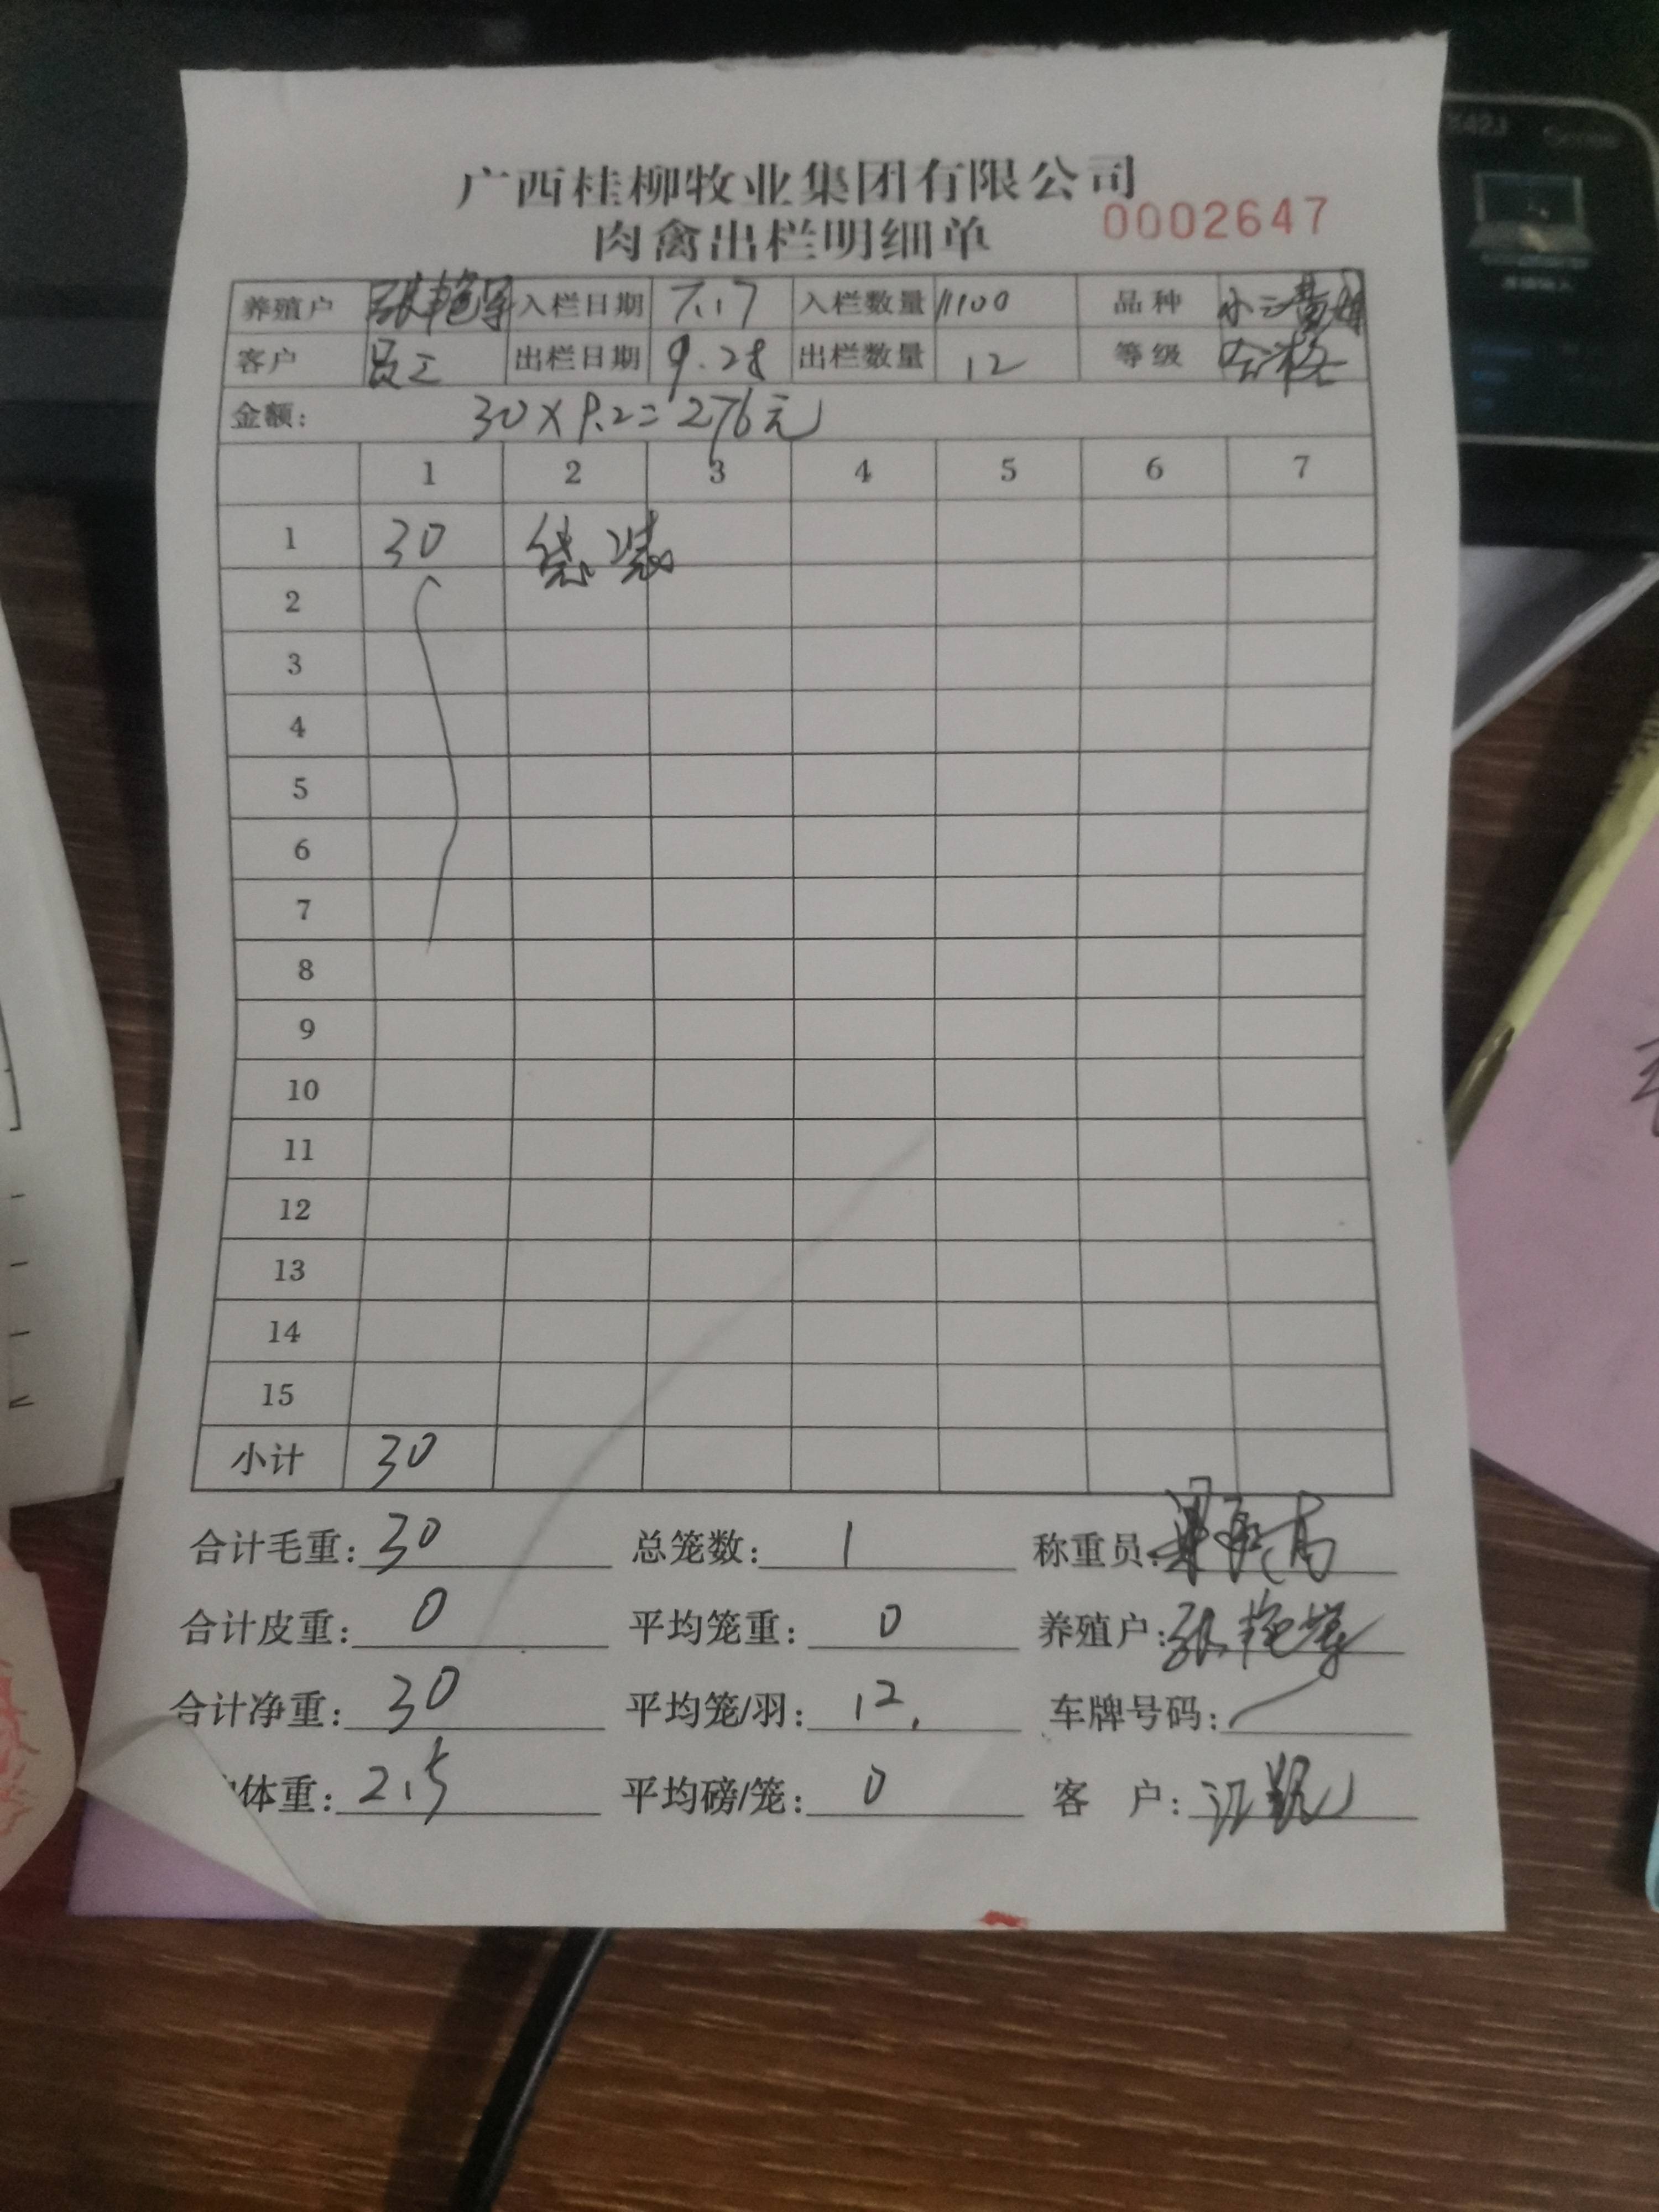 广西桂柳牧业集团有限公司
肉禽出栏明细单 0002647
养殖户 入栏日期 7.17 入栏数量 11100 品种
客户 员工 出栏日期 9.28 出栏数量 12 等级 合格
金额: 30×9.2=276元
1 2 3 4 5 6 7
1 30 袋装
2
3
4
5
6
7
8
9
10
11
12
13
14
15
小计 30
合计毛重: 30 总笼数: 1 称重员:
合计皮重: 0 平均笼重: 0 养殖户:
合计净重: 30 平均笼/羽: 12. 车牌号码:
体重: 2.5 平均磅/笼: 0 客 户: